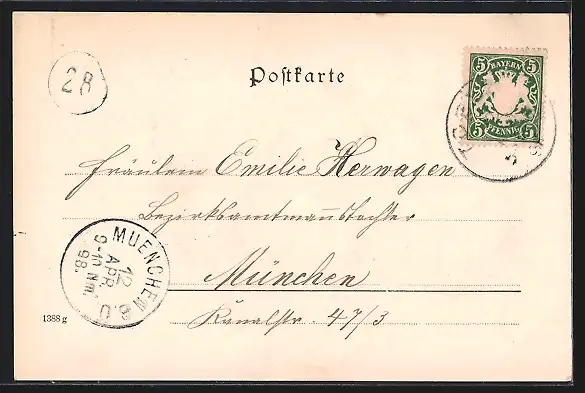 28
Postkarte
5 BAYERN 5
5 PFENNIG 5
Fräulein Emilie Herwagen
Bezirksamtmannstochter
München
Kanalstr. 47/3
MUENCHEN B.O.
12
APR.
9-10 Nm.
98.
1388 g